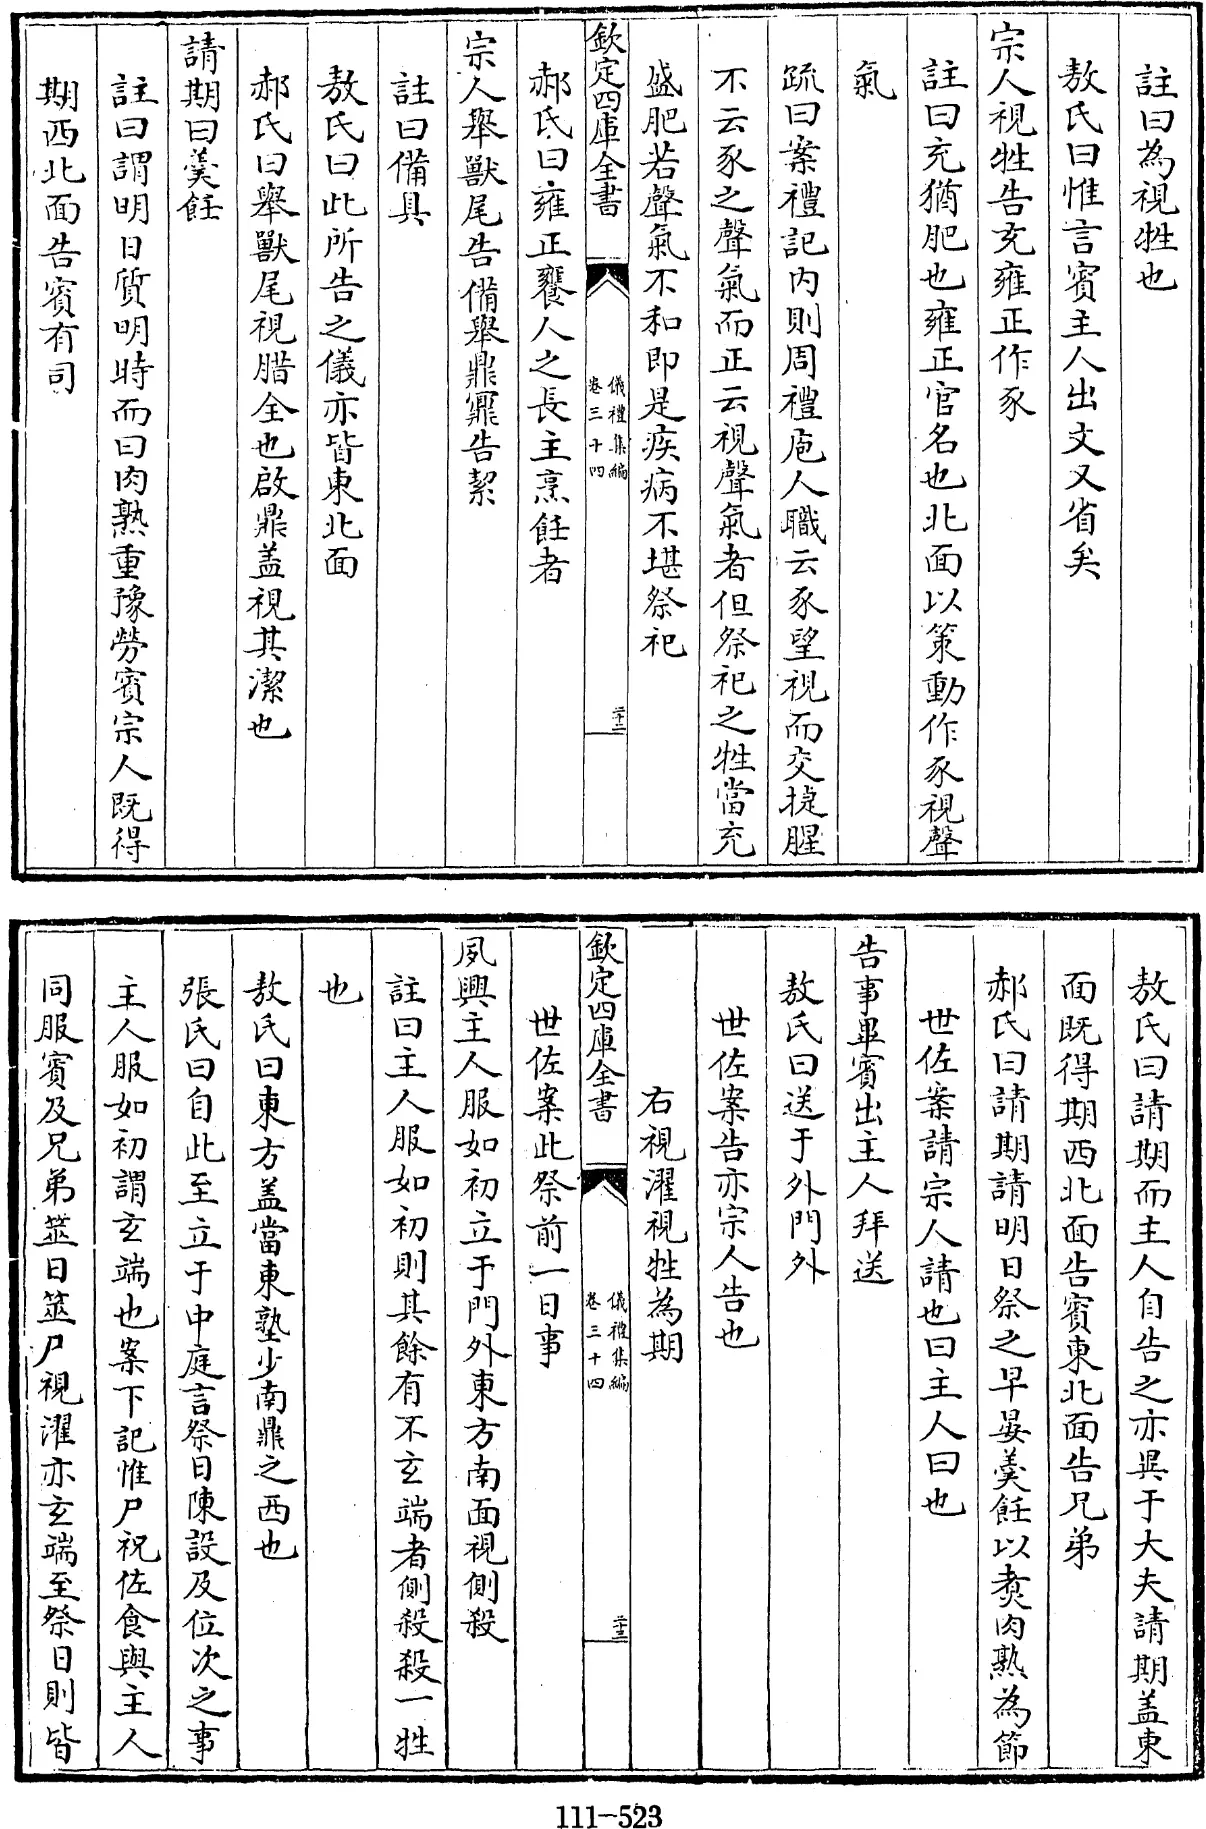 註曰為視牲也
敖氏曰惟言賓主人出文又省矣
宗人視牲告充雍正作豕
註曰充猶肥也雍正官名也北面以策動作豕視聲
氣
疏曰案禮記内則周禮庖人職云豕望視而交捷腥
不云豕之聲氣而正云視聲氣者但祭祀之牲當充
盛肥若聲氣不和即是疾病不堪祭祀
欽定四庫全書
儀禮集編
卷三十四
二十二
郝氏曰雍正饔人之長主烹飪者
宗人舉獸尾告備舉鼎鼏告絜
註曰備具
敖氏曰此所告之儀亦皆東北面
郝氏曰舉獸尾視腊全也啟鼎盖視其潔也
請期曰羹飪
註曰謂明日質明時而曰肉熟重豫勞賓宗人既得
期西北面告賓有司
敖氏曰請期而主人自告之亦異于大夫請期盖東
面既得期西北面告賓東北面告兄弟
郝氏曰請期請明日祭之早晏羹飪以煑肉熟為節
世佐案請宗人請也曰主人曰也
告事畢賓出主人拜送
敖氏曰送于外門外
世佐案告亦宗人告也
右視濯視牲為期
欽定四庫全書
儀禮集編
卷三十四
二十三
世佐案此祭前一日事
夙興主人服如初立于門外東方南面視側殺
註曰主人服如初則其餘有不玄端者側殺殺一牲
也
敖氏曰東方盖當東塾少南鼎之西也
張氏曰自此至立于中庭言祭日陳設及位次之事
主人服如初謂玄端也案下記惟尸祝佐食與主人
同服賓及兄弟筮日筮尸視濯亦玄端至祭日則皆
111-523